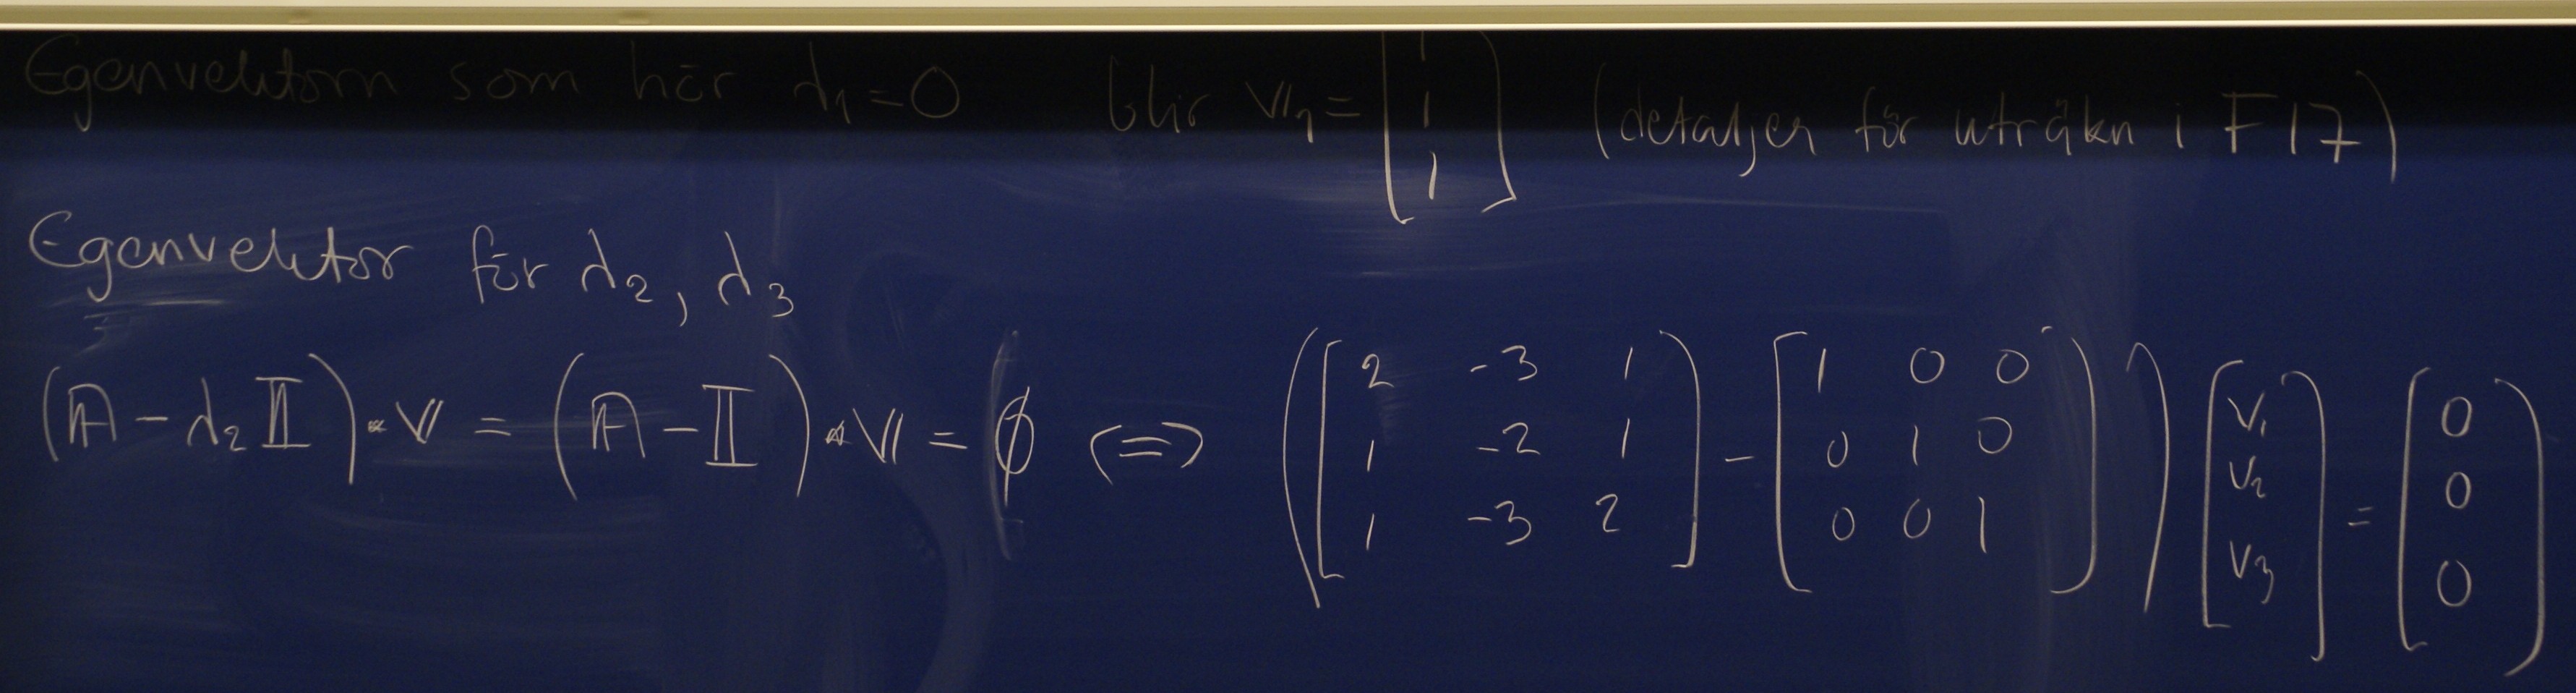 Egenvektorn som hör λ₁=0 blir v₁ = [1 1 1] (detaljer för uträkn i F17)
Egenvektor för λ₂, λ₃
(A - λ₂ I)·v = (A - I)·v = 0 <=> ([2 -3 1; 1 -2 1; 1 -3 2] - [1 0 0; 0 1 0; 0 0 1]) [v₁; v₂; v₃] = [0; 0; 0]